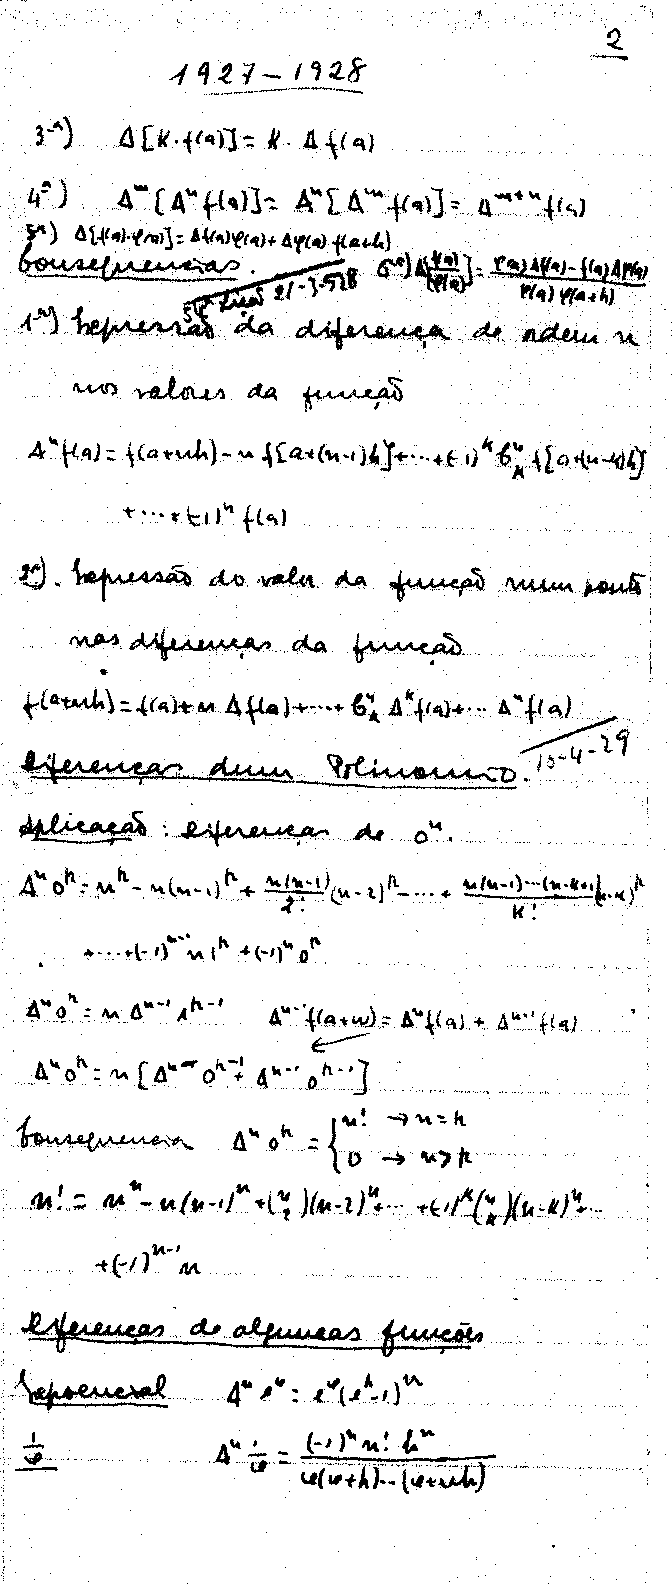 2
1927-1928
3-a) Δ[K·f(a)] = K·Δf(a)
4-a) Δ^m[Δ^n f(a)] = Δ^n[Δ^m f(a)] = Δ^{m+n} f(a)
5-a) Δ[f(a)·φ(a)] = Δf(a)φ(a) + Δφ(a) f(a+h)
6-a) Δ[f(a)/φ(a)] = (φ(a)Δf(a) - f(a)Δφ(a))/(φ(a) φ(a+h))
Consequencias.
5-a Lição 21-3-928
1-a) Expressão da diferença de ordem n
nos valores da função
Δ^n f(a) = f(a+nh) - n f[a+(n-1)h] + ··· + (-1)^K C^n_K f[a+(n-K)h]
+ ··· + (-1)^n f(a)
2-a). Expressão do valor da função num ponto
nas diferenças da função
f(a+nh) = f(a) + n Δf(a) + ··· + C^n_K Δ^K f(a) + ··· Δ^n f(a)
Diferenças dum Polinomio. 15-4-29
Aplicação: Diferenças de 0^n.
Δ^n 0^h = n^h - n(n-1)^h + n(n-1)/2! (n-2)^h - ··· + n(n-1)···(n-K+1)/K! (n-K)^h
+ ··· + (-1)^{n-1} n 1^h + (-1)^n 0^h
Δ^n 0^h = n Δ^{n-1} 1^{h-1} Δ^{n-1} f(a+w) = Δ^n f(a) + Δ^{n-1} f(a)
Δ^n 0^h = n [Δ^n 0^{h-1} + Δ^{n-1} 0^{h-1}]
Consequencia Δ^n 0^h = { n! → n=h
0 → n>h
n! = n^n - n(n-1)^n + (n 2)(n-2)^n + ··· + (-1)^K (n K)(n-K)^n + ···
+ (-1)^{n-1} n
Diferenças de algumas funções
Exponencial Δ^n e^x = e^x (e^h - 1)^n
1/x Δ^n 1/x = (-1)^n n! h^n / x(x+h)···(x+nh)